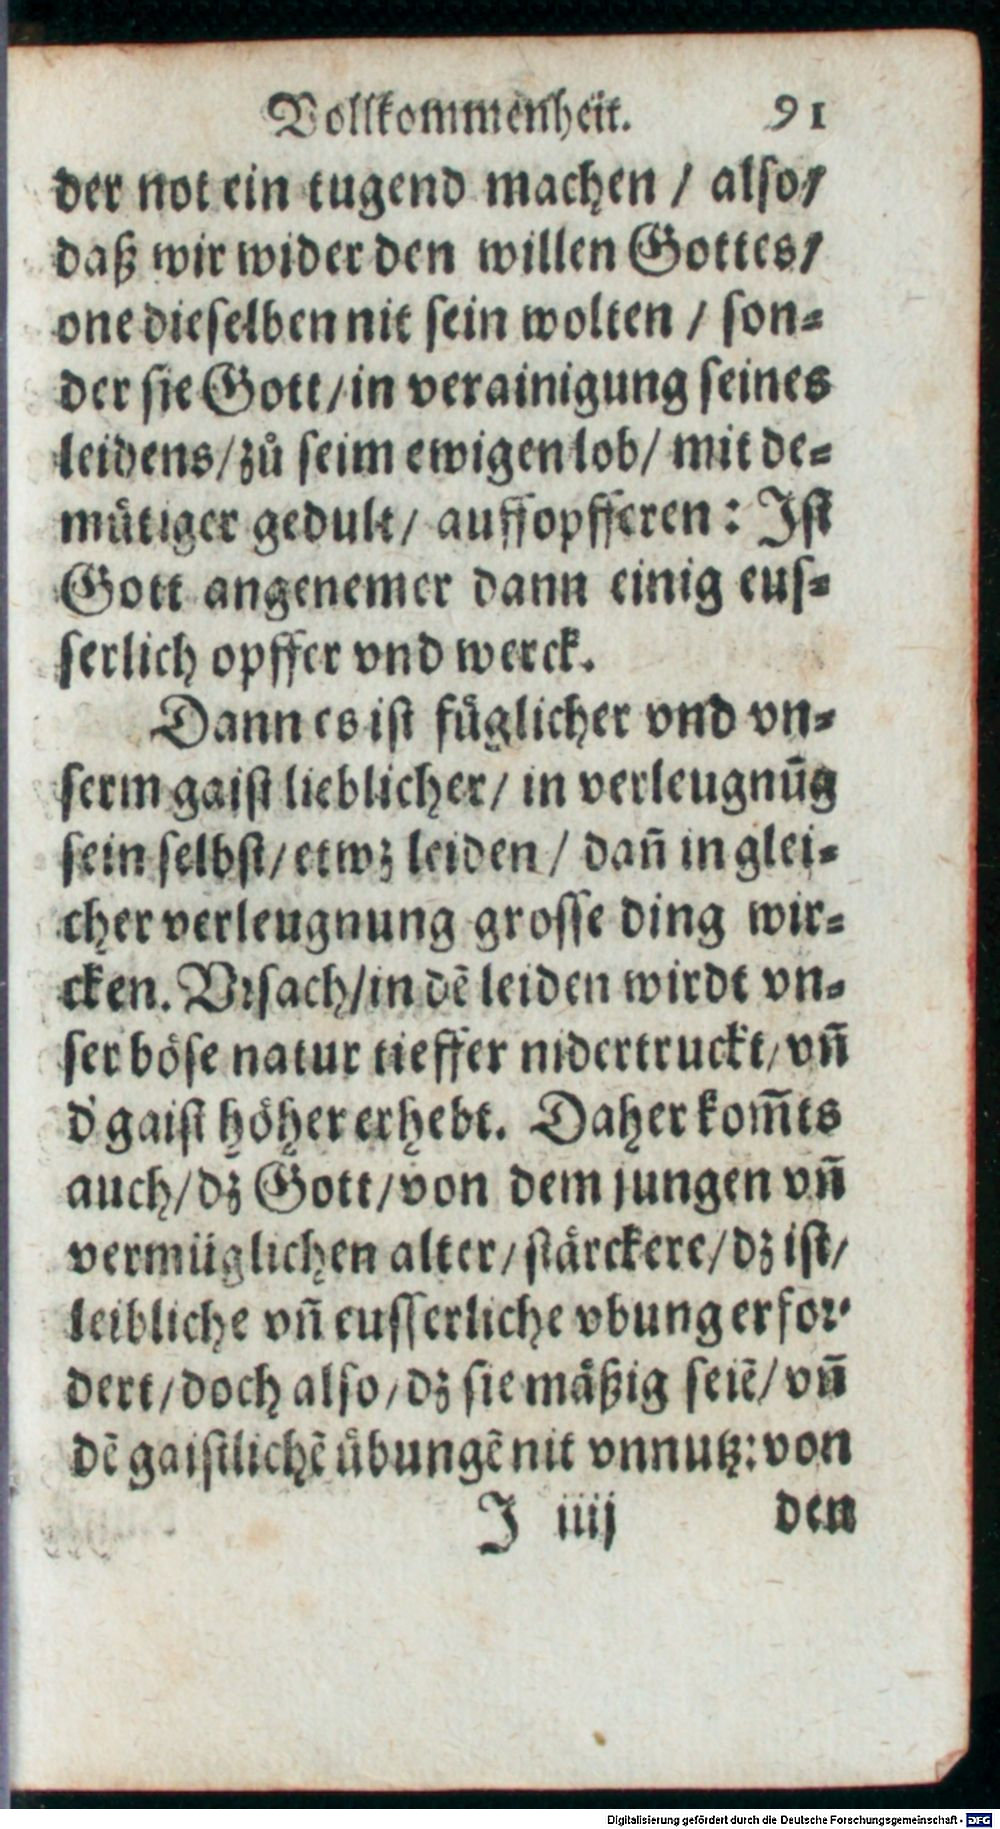 Vollkommenheit. 91
der not ein tugend machen / also/
daß wir wider den willen Gottes/
one dieselben nit sein wolten / son⸗
der sie Gott/in verainigung seines
leidens/zů seim ewigen lob/ mit de⸗
mütiger gedult/ auffopfferen: Ist
Gott angenemer dann einig eus⸗
serlich opffer vnd werck.
Dann es ist füglicher vnd vn⸗
serm gaist lieblicher/ in verleugnūg
sein selbst/etwz leiden / dañ in glei⸗
cher verleugnung grosse ding wir⸗
cken. Vrsach/in dē leiden wirdt vn⸗
ser böse natur tieffer nidertruckt/vñ
d' gaist höher erhebt. Daher kom̄ts
auch/dz Gott/von dem jungen vñ
vermüglichen alter/stärckere/dz ist/
leibliche vñ eusserliche vbung erfor⸗
dert/doch also/dz sie mäßig seiē/vñ
dē gaistlichē übungē nit vnnutz: von
J iiij den
Digitalisierung gefördert durch die Deutsche Forschungsgemeinschaft - DFG